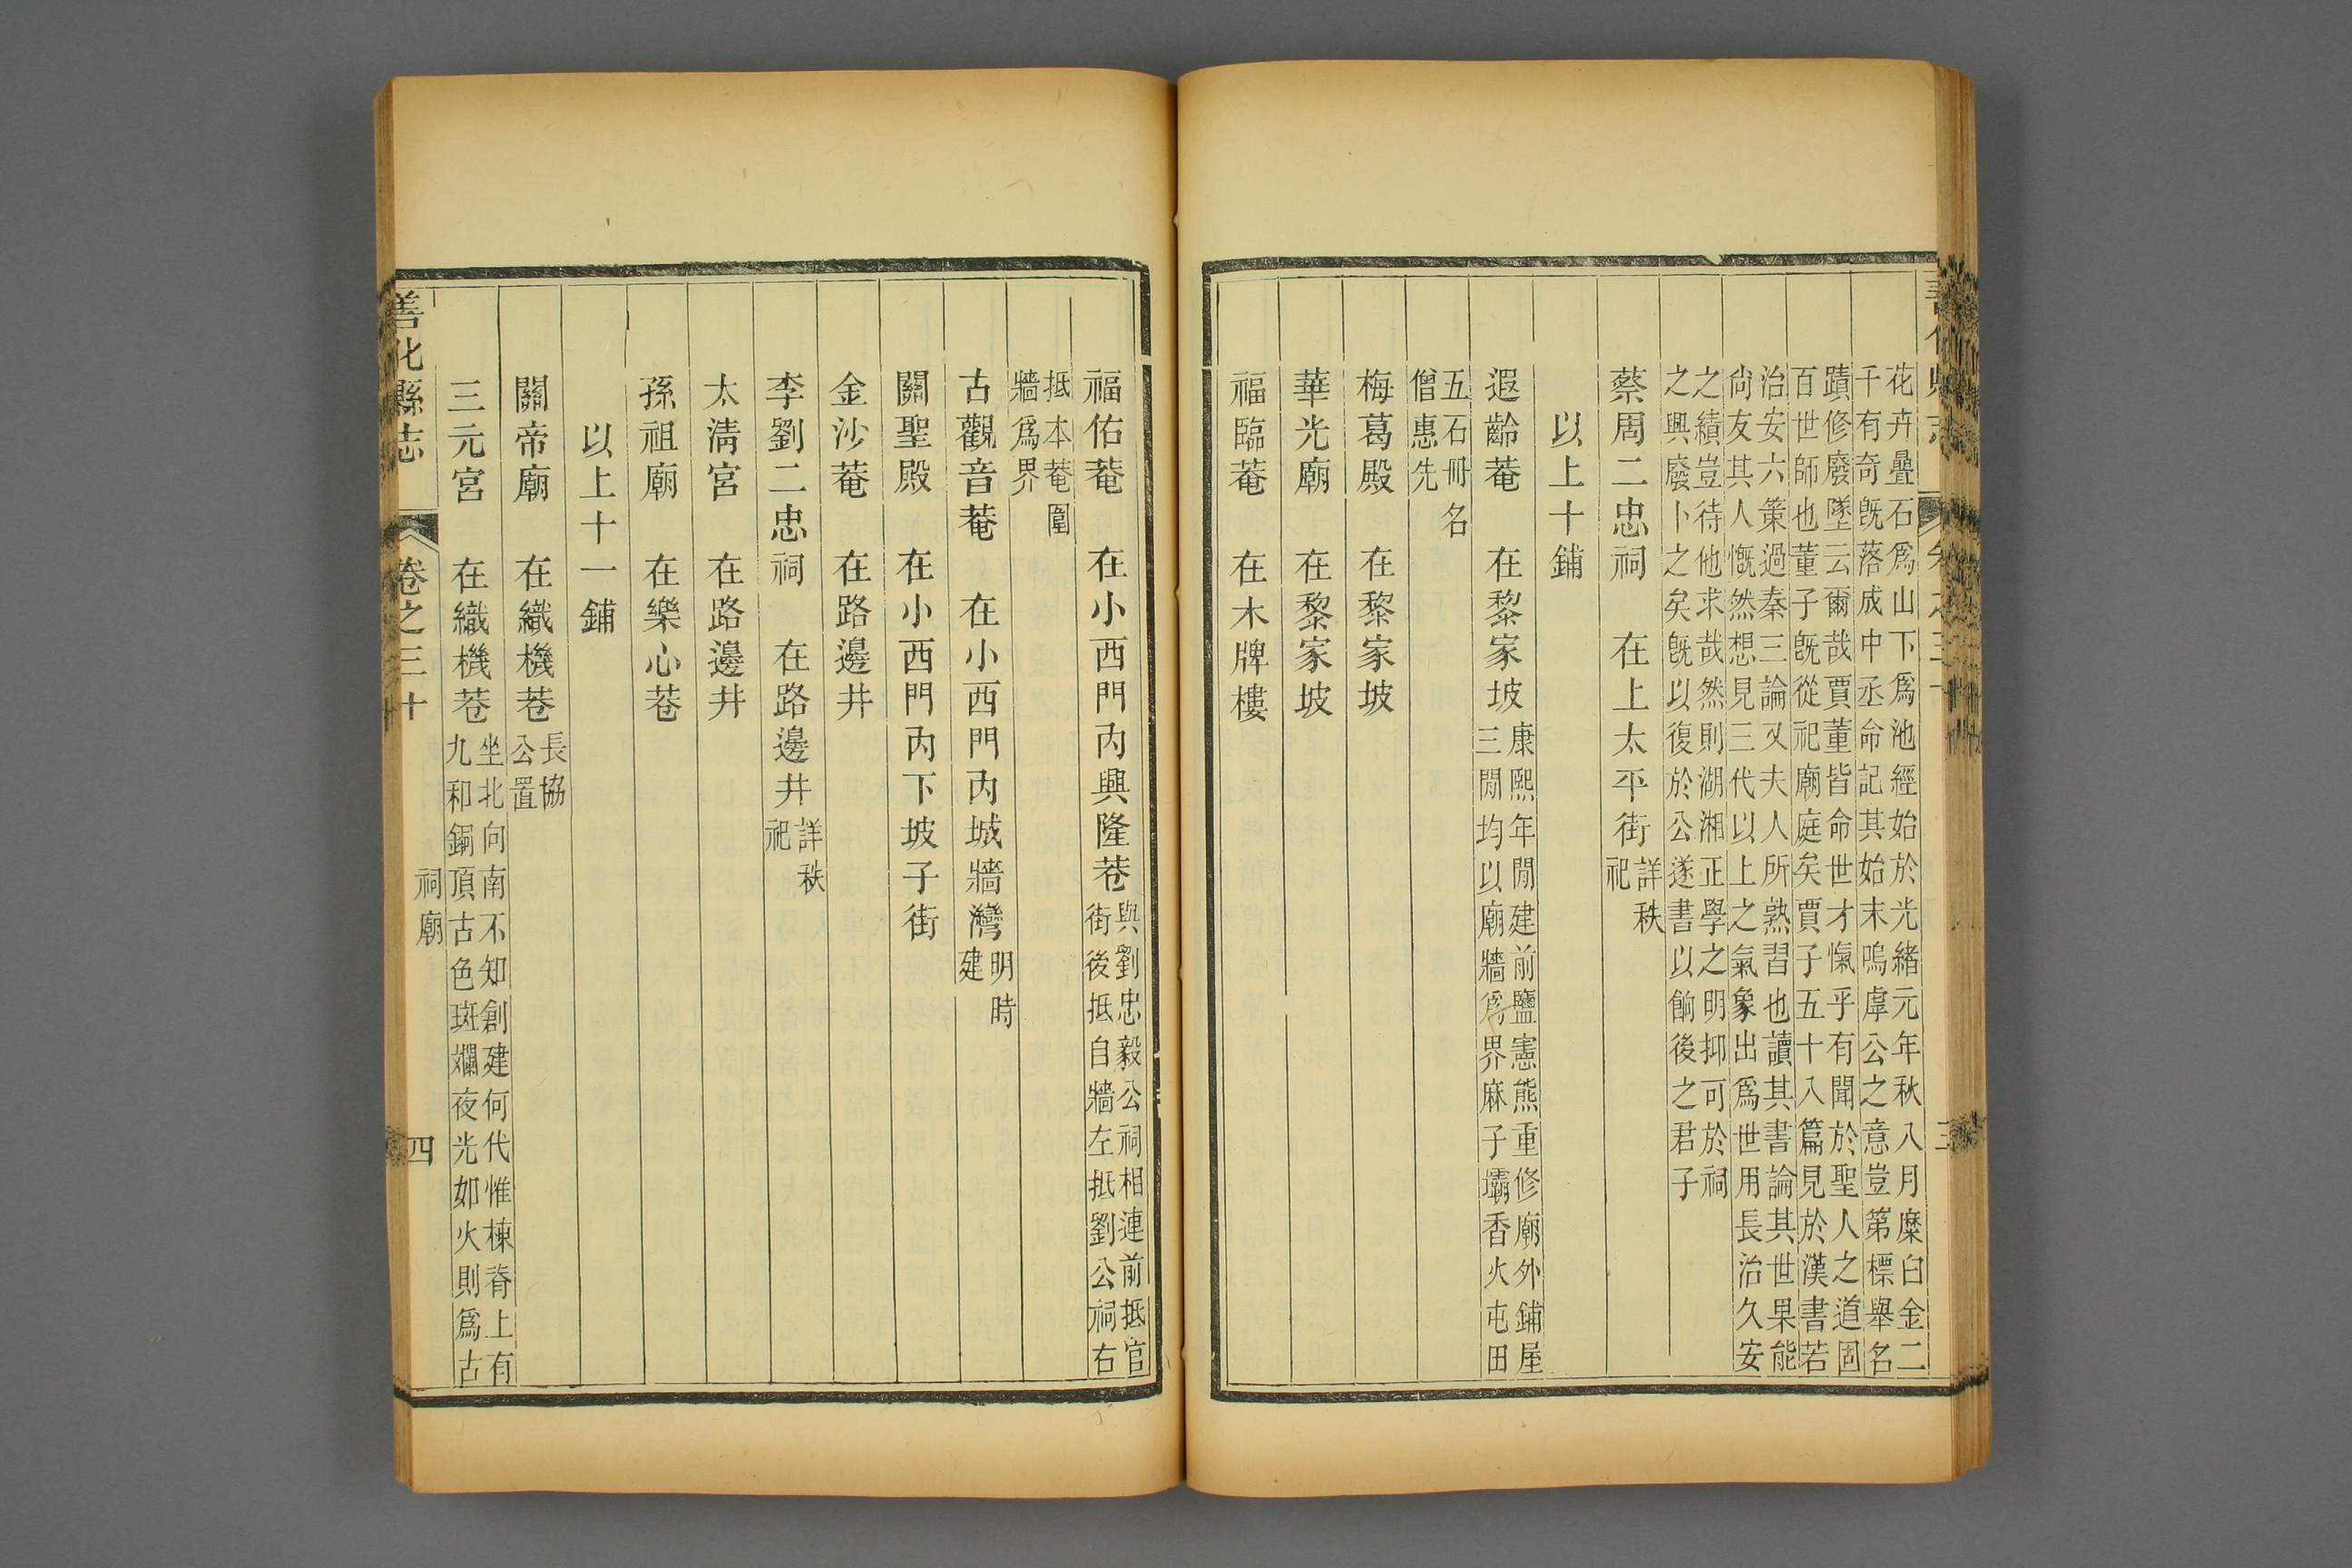 花卉疊石爲山下爲池經始於光緖元年秋八月糜白金二
千有奇旣落成中丞命記其始末嗚虖公之意豈第標舉名
蹟修廢墜云爾哉賈董皆命世才愾乎有聞於聖人之道固
百世師也董子旣從祀廟庭矣賈子五十八篇見於漢書若
治安六策過秦三論又夫人所熟習也讀其書論其世果能
尙友其人慨然想見三代以上之氣象出爲世用長治久安
之績豈待他求哉然則湖湘正學之明抑可於祠
之興廢卜之矣旣以復於公遂書以餉後之君子
蔡周二忠祠 在上太平街詳秩
祀
以上十鋪
遐齡菴 在黎家坡康熙年閒建前鹽憲熊重修廟外鋪屋
三閒均以廟牆爲界麻子壩香火屯田
五石冊名
僧惠先
梅葛殿 在黎家坡
華光廟 在黎家坡
福臨菴 在木牌樓
福佑菴 在小西門內興隆巷與劉忠毅公祠相連前抵官
街後抵自牆左抵劉公祠右
抵本菴圍
牆爲界
古觀音菴 在小西門內城牆灣明時
建
關聖殿 在小西門內下坡子街
金沙菴 在路邊井
李劉二忠祠 在路邊井詳秩
祀
太淸宮 在路邊井
孫祖廟 在樂心巷
以上十一鋪
關帝廟 在織機巷長協
公置
三元宮 在織機巷坐北向南不知創建何代惟棟脊上有
九和銅頂古色斑斕夜光如火則爲古
善化縣志 卷之三十 祠廟 四